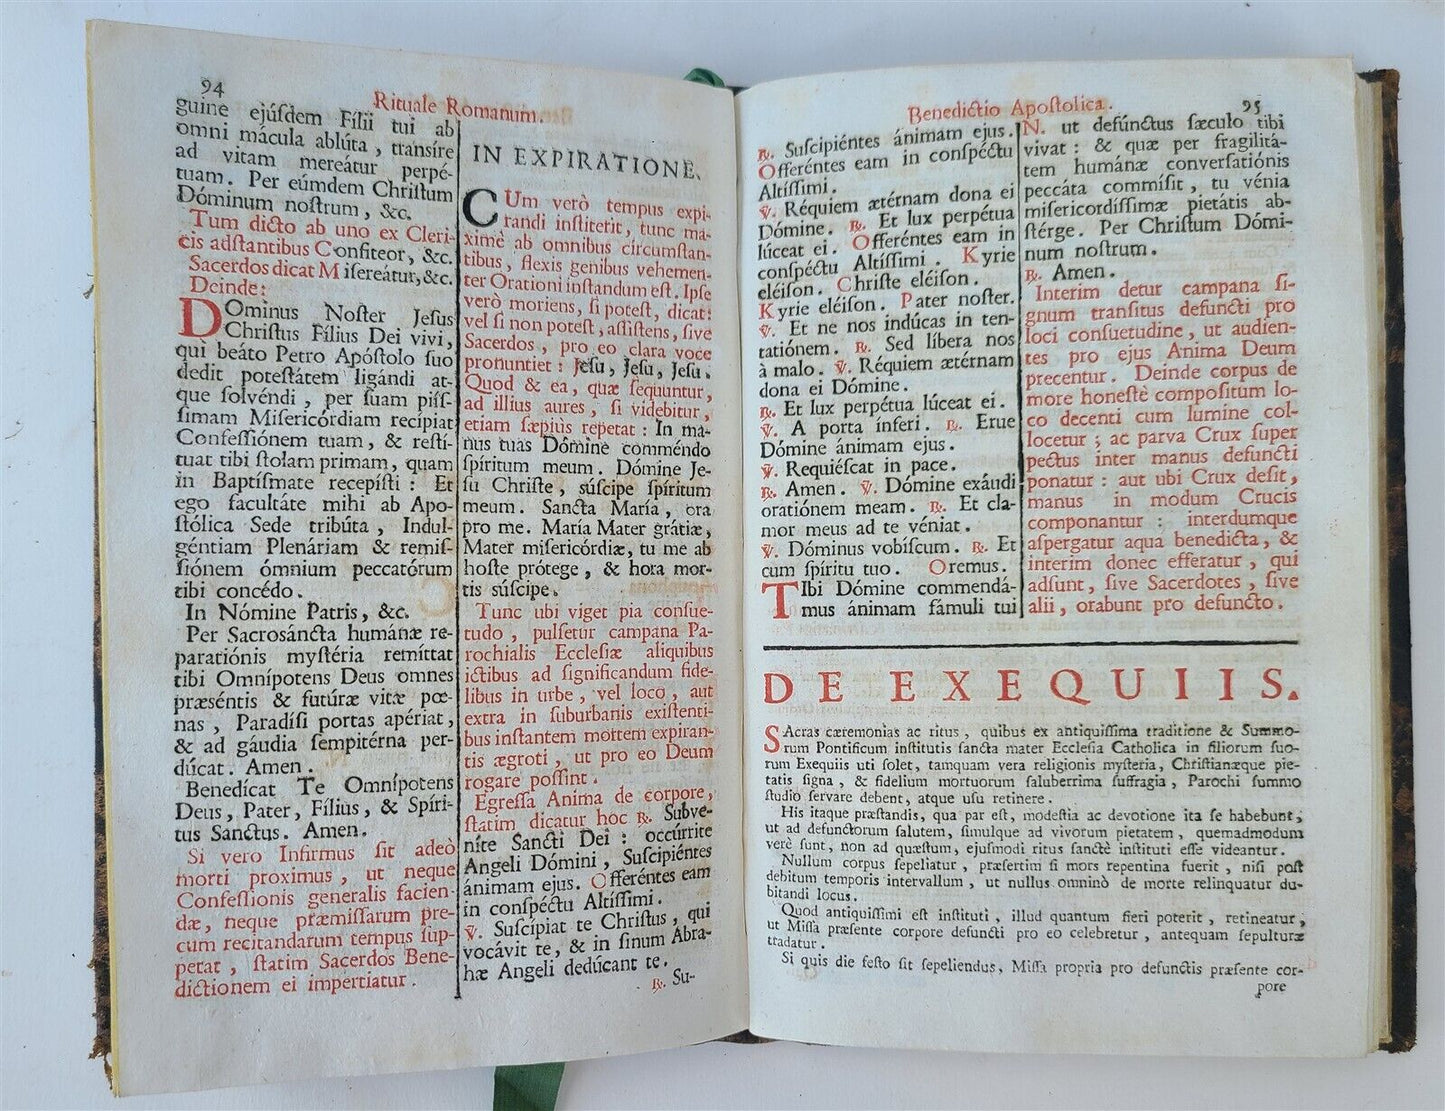 94
Rituale Romanum.
guine ejúſdem Fílii tui ab
omni mácula ablúta, tranſíre
ad vitam mereátur perpé-
tuam. Per eúmdem Chriſtum
Dóminum noſtrum, &c.
Tum dicto ab uno ex Cleri-
cis adſtantibus Confiteor, &c.
Sacerdos dicat Miſereátur, &c.
Deinde:
DOminus Noſter Jeſus
Chriſtus Fílius Dei vivi,
qui beáto Petro Apóſtolo ſuo
dedit poteſtátem ligándi at-
que ſolvéndi, per ſuam piíſ-
ſimam Miſericórdiam recipiat
Confeſſiónem tuam, & reſtí-
tuat tibi ſtolam primam, quam
in Baptíſmate recepíſti: Et
ego facultáte mihi ab Apo-
ſtólica Sede tribúta, Indul-
géntiam Plenáriam & remiſ-
ſiónem ómnium peccatórum
tibi concédo.
In Nómine Patris, &c.
Per Sacroſáncta humánæ re-
paratiónis myſtéria remíttat
tibi Omnípotens Deus omnes
præséntis & futúræ vitæ pœ-
nas, Paradíſi portas apériat,
& ad gáudia ſempitérna per-
dúcat. Amen.
Benedícat Te Omnípotens
Deus, Pater, Fílius, & Spíri-
tus Sanctus. Amen.
Si vero Infirmus ſit adeò
morti proximus, ut neque
Confeſſionis generalis facien-
dæ, neque præmiſſarum pre-
cum recitandarum tempus ſup-
petat, ſtatim Sacerdos Bene-
dictionem ei impertiatur.
IN EXPIRATIONE.
CUm verò tempus expi-
randi inſtiterit, tunc ma-
ximè ab omnibus circumſtan-
tibus, flexis genibus vehemen-
ter Orationi inſtandum eſt. Ipſe
verò moriens, ſi poteſt, dicat:
vel ſi non poteſt, aſſiſtens, ſive
Sacerdos, pro eo clara voce
pronuntiet: Jeſu, Jeſu, Jeſu.
Quod & ea, quæ ſequuntur,
ad illius aures, ſi videbitur,
etiam ſæpius repetat: In ma-
nus tuas Dómine comméndo
ſpíritum meum. Dómine Je-
ſu Chriſte, súſcipe ſpíritum
meum. Sancta María, ora
pro me. María Mater grátiæ,
Mater miſericórdiæ, tu me ab
hoſte prótege, & hora mor-
tis súſcipe.
Tunc ubi viget pia conſue-
tudo, pulſetur campana Pa-
rochialis Eccleſiæ aliquibus
ictibus ad ſignificandum fide-
libus in urbe, vel loco, aut
extra in ſuburbanis exiſtenti-
bus inſtantem mortem expiran-
tis ægroti, ut pro eo Deum
rogare poſſint.
Egreſſa Anima de corpore,
ſtatim dicatur hoc ℟. Subve-
níte Sancti Dei: occúrrite
Angeli Dómini, Suſcipiéntes
ánimam ejus. Offeréntes eam
in conſpéctu Altíſſimi.
℣. Suſcípiat te Chriſtus, qui
vocávit te, & in ſinum Abra-
hæ Angeli dedúcant te.
℟. Su-
Benedictio Apoſtolica.
95
℟. Suſcipiéntes ánimam ejus.
Offeréntes eam in conſpéctu
Altíſſimi.
℣. Réquiem ætérnam dona ei
Dómine. ℟. Et lux perpétua
lúceat ei. Offeréntes eam in
conſpéctu Altíſſimi. Kyrie
eléiſon. Chriſte eléiſon.
Kyrie eléiſon. Pater noſter.
℣. Et ne nos indúcas in ten-
tatiónem. ℟. Sed líbera nos
à malo. ℣. Réquiem ætérnam
dona ei Dómine.
℟. Et lux perpétua lúceat ei.
℣. A porta ínferi. ℟. Erue
Dómine ánimam ejus.
℣. Requiéſcat in pace.
℟. Amen. ℣. Dómine exáudi
oratiónem meam. ℟. Et cla-
mor meus ad te véniat.
℣. Dóminus vobíſcum. ℟. Et
cum ſpíritu tuo. Oremus.
TIbi Dómine commendá-
mus ánimam fámuli tui
N. ut defúnctus ſæculo tibi
vivat: & quæ per fragilitá-
tem humánæ converſatiónis
peccáta commíſit, tu vénia
miſericordíſſimæ pietátis ab-
ſtérge. Per Chriſtum Dómi-
num noſtrum.
℟. Amen.
Interim detur campana ſi-
gnum tranſitus defuncti pro
loci conſuetudine, ut audien-
tes pro ejus Anima Deum
precentur. Deinde corpus de
more honeſtè compoſitum lo-
co decenti cum lumine col-
locetur; ac parva Crux ſuper
pectus inter manus defuncti
ponatur: aut ubi Crux deſit,
manus in modum Crucis
componantur: interdumque
aſpergatur aqua benedicta, &
interim donec efferatur, qui
adſunt, ſive Sacerdotes, ſive
alii, orabunt pro defuncto.
DE EXEQUIIS.
SAcras cæremonias ac ritus, quibus ex antiquiſſima traditione & Summo-
rum Pontificum inſtitutis ſancta mater Eccleſia Catholica in filiorum ſuo-
rum Exequiis uti ſolet, tamquam vera religionis myſteria, Chriſtianæque pie-
tatis ſigna, & fidelium mortuorum ſaluberrima ſuffragia, Parochi ſummo
ſtudio ſervare debent, atque uſu retinere.
His itaque præſtandis, qua par eſt, modeſtia ac devotione ita ſe habebunt,
ut ad defunctorum ſalutem, ſimulque ad vivorum pietatem, quemadmodum
verè ſunt, non ad quæſtum, ejuſmodi ritus ſanctè inſtituti eſſe videantur.
Nullum corpus ſepeliatur, præſertim ſi mors repentina fuerit, niſi poſt
debitum temporis intervallum, ut nullus omninò de morte relinquatur du-
bitandi locus.
Quod antiquiſſimi eſt inſtituti, illud quantum fieri poterit, retineatur,
ut Miſſa præſente corpore defuncti pro eo celebretur, antequam ſepulturæ
tradatur.
Si quis die feſto ſit ſepeliendus, Miſſa propria pro defunctis præſente cor-
pore